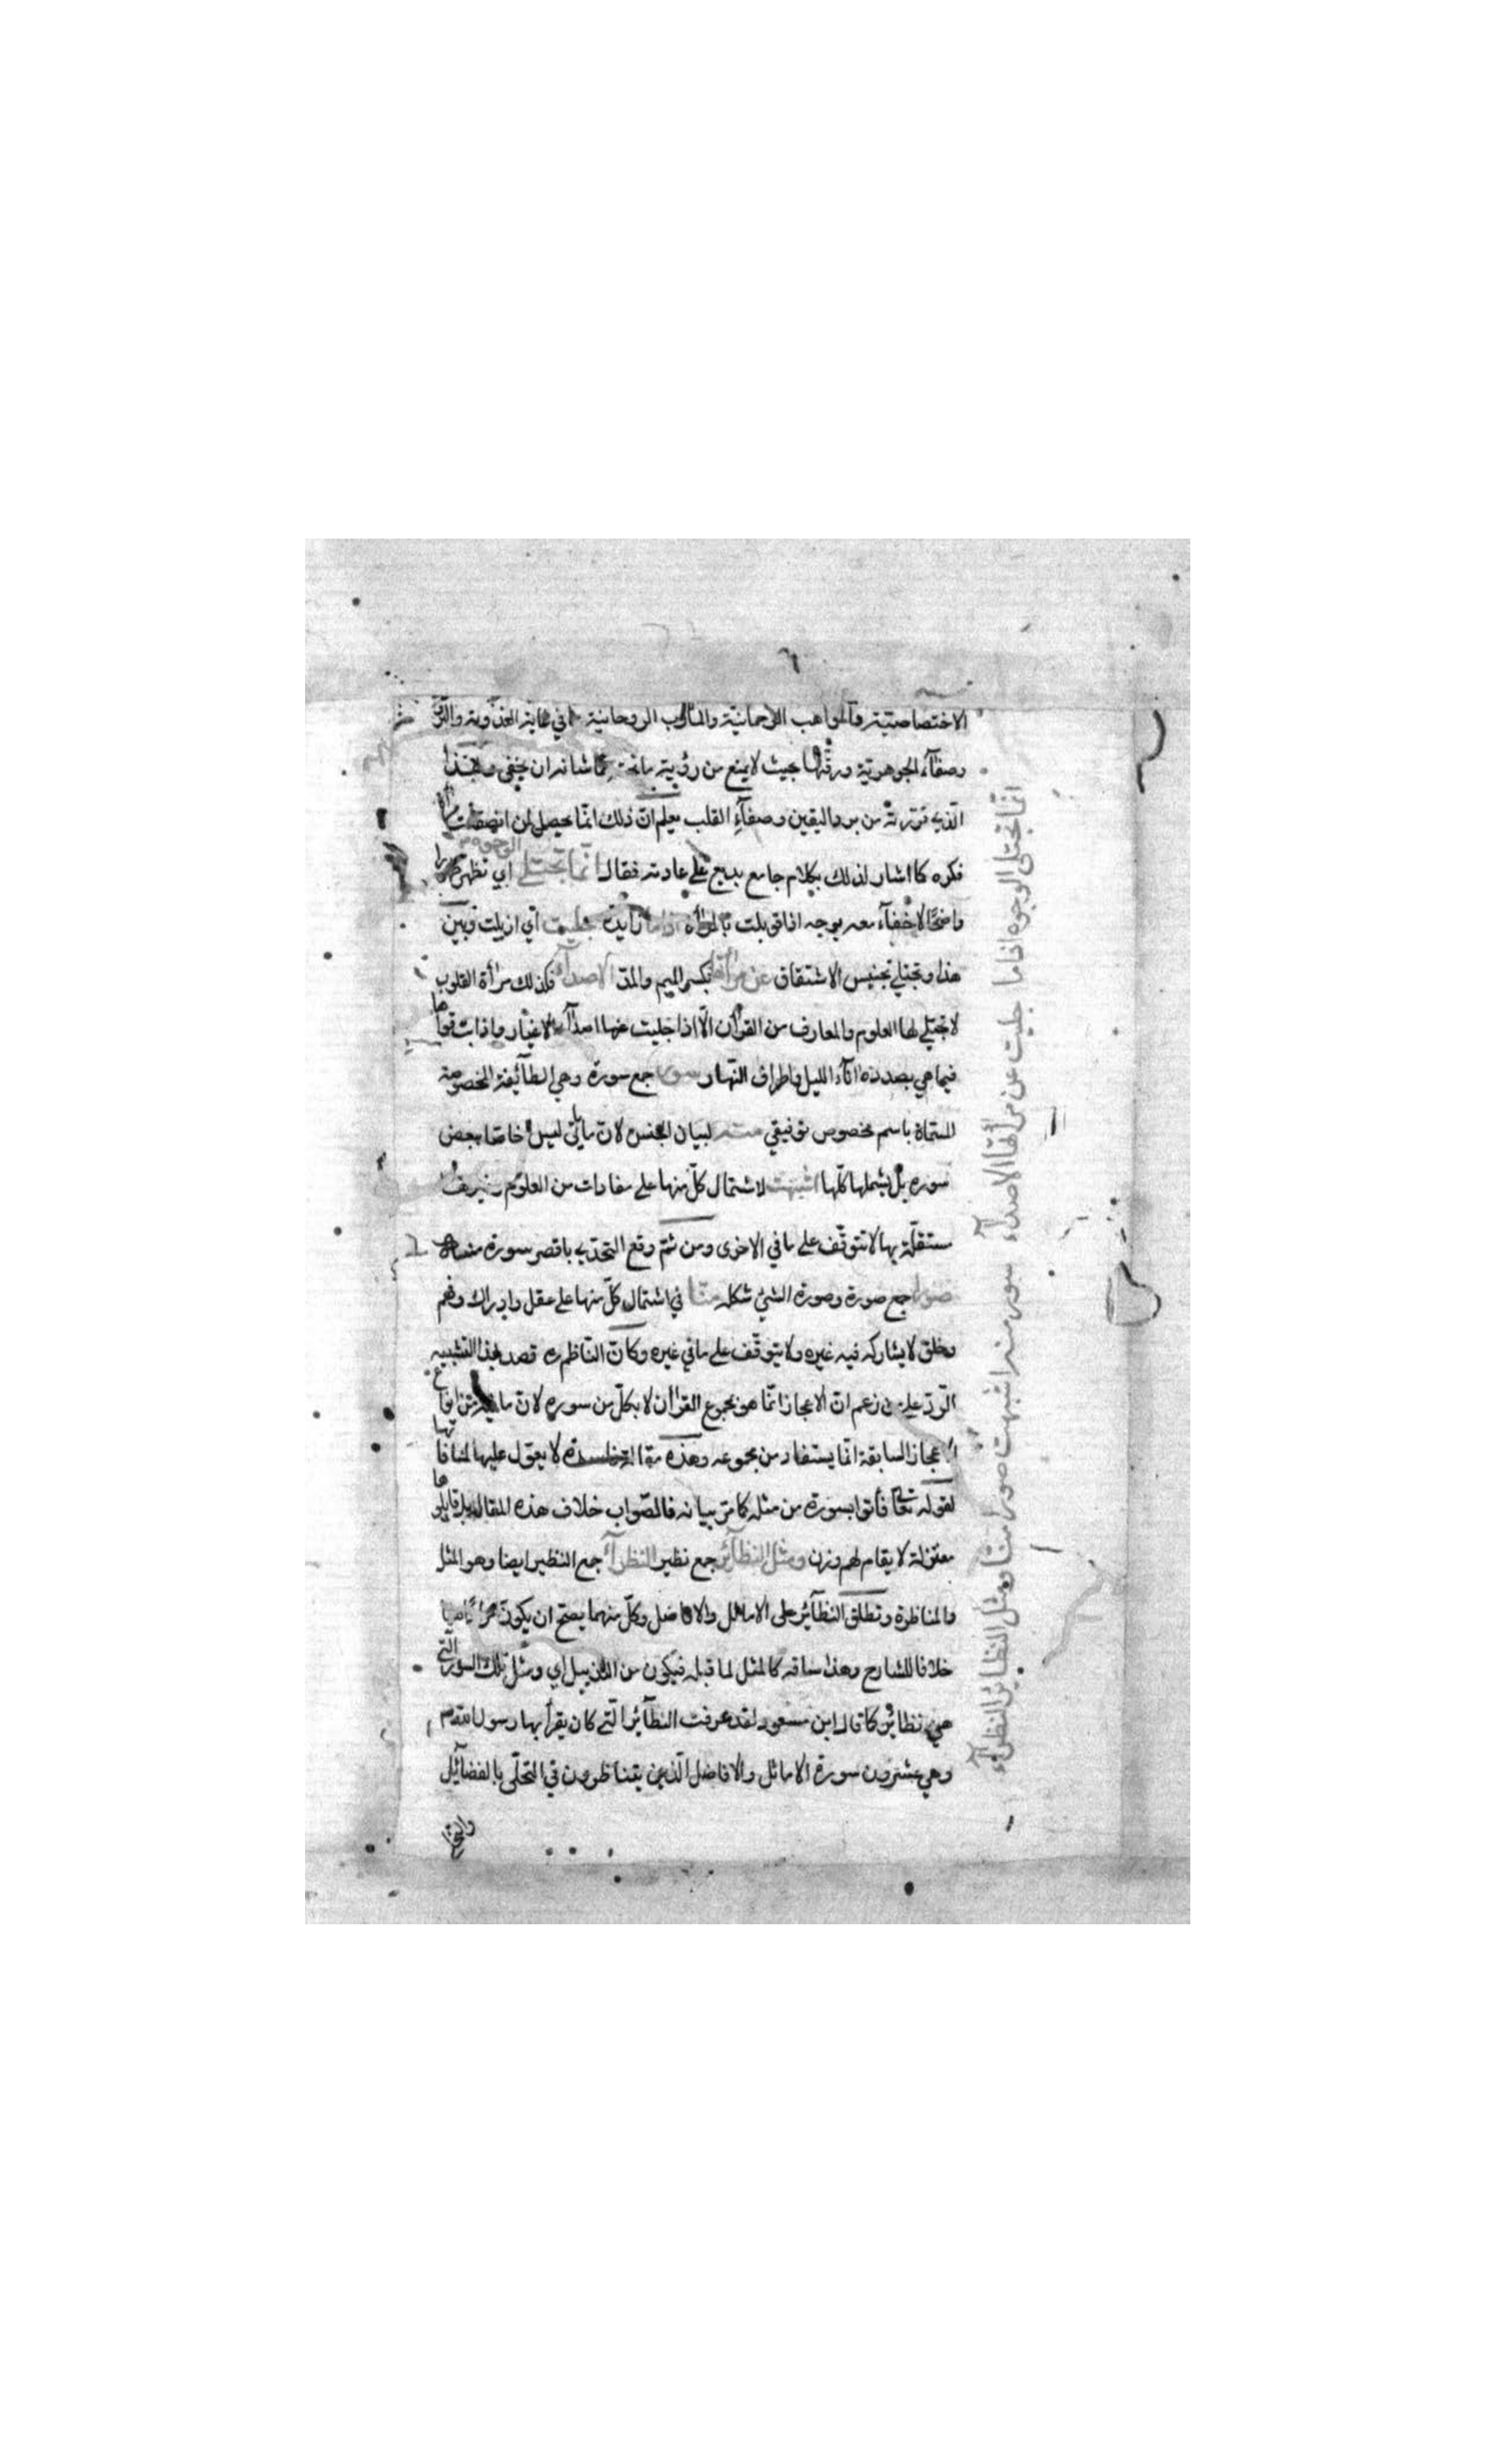 الاختصاصيّة والمواهب الرحمانيّة والمآدب الروحانية في غاية العذوبة والرقّ
وصفآء الجوهريّة ورقّتها بحيث لا يمنع من رؤية ما تحته مما شانه ان يخفى وبهذا
الّذي قرّرته من برد اليقين وصفآء القلب يعلم انّ ذلك انّما يحصل لمن انصقلت مرآة
فكره كما اشار لذلك بكلام جامع بديع على عادته فقال انّما تجتلى الوجوه اي تظهر ظهورا
واضحًا لا خفآء معه بوجه اذا قوبلت بالمرأة اذا ما زايدة جليت أي ازيلت وبين
هذا وتجتلي تجنيس الاشتقاق عن مرآتها بكسر الميم والمدّ الاصدآء فكذلك مرأة القلوب
لا تجتلي لها العلوم والمعارف من القرأن الّا اذا جليت عنها اصدآء الاغيار واذابت قواها
فيما هي بصدده اناء الليل واطراف النّهار سور جمع سورة وهي الطآئفة المخصوصة
المسمّاة باسم مخصوص توقيفي منه لبيان الجنس لانّ ما يأتي ليس خاصّا ببعض
سوره بل يشملها كلّها اشبهت لاشتمال كلّ منها على مفادات من العلوم
مستقلّة بها لا تتوقّف على ما في الاخرى ومن ثمّ وقع التحدّي باقصر سورة منه
صورا جمع صورة وصورة الشئ شكله منّا في اشتمال كلّ منها على عقل وادراك وفهم
وخلق لا يشاركه فيه غيره ولا يتوقّف على ما في غيره وكانّ النّاظم ره قصد بهذا التشبيه
الرّدّ على من زعم انّ الاعجاز انّما هو بمجموع القرأن لا بكلّ من سوره لانّ ما مرّ من انواع
الاعجاز السابقة انّما يستفاد من مجموعه وهذه مقالة فاسدة لا يعوّل عليها لمنافاتها
لقوله تعالى فأتوا بسورة من مثله كما مرّ بيانه فالصّواب خلاف هذه المقالة بل قايلوها
معتزلة لا يقام لهم وزن ومثل النظآئر جمع نظير النظرآء جمع النظير ايضا وهو المثل
والمناظرة وتطلق النظآئر على الاماثل والافاضل وكلّ منهما يصحّ ان يكون مرادًا هنا
خلافا للشارح وهذا ساقه كالمثل لما قبله فيكون من التذييل اي ومثل تلك السور الّتي
هي نظائر كما قال ابن مسعود لقد عرفت النظآئر الّتي كان يقرأ بها رسول الله
وهي عشرون سورة الاماثل والافاضل الّذين يتناظرون في التحلّى بالفضآئل
انّما تجتلى الوجوه اذا ما جليت عن مرأتها الاصدآء سور منه اشبهت صورا منّا ومثل النظائر النظرآء